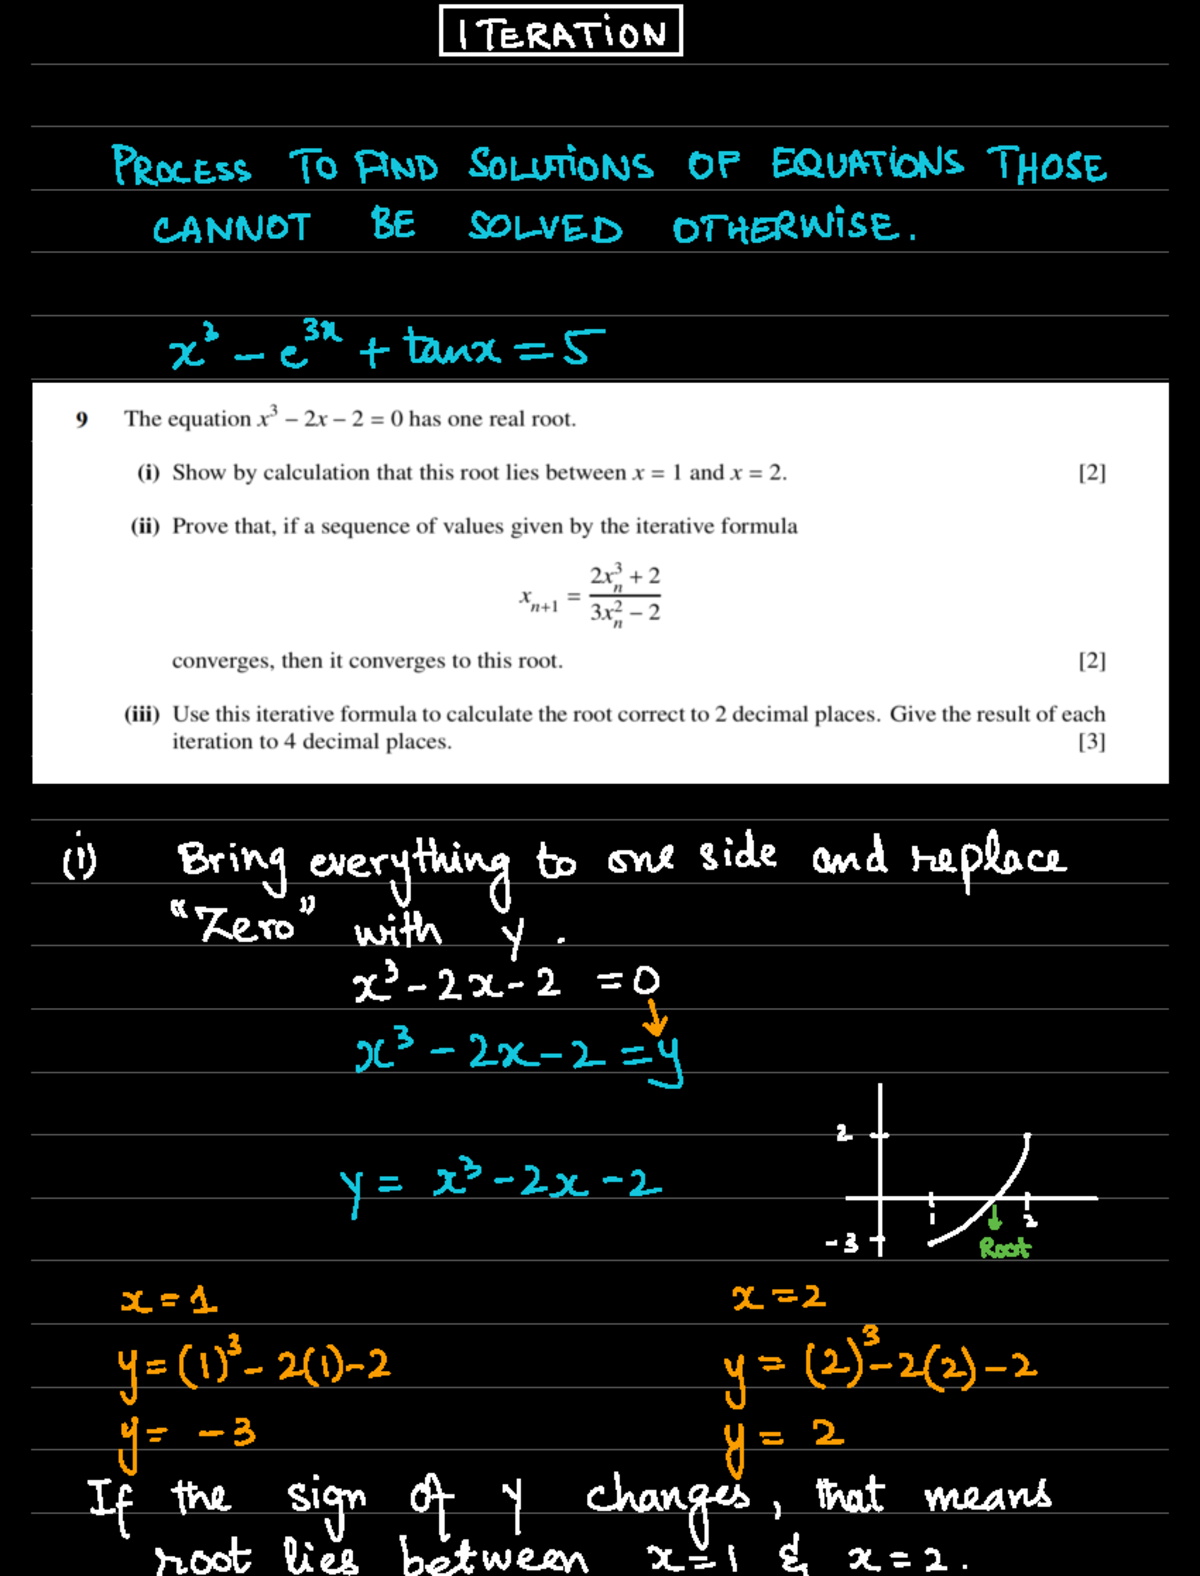 ITERATION
PROCESS TO FIND SOLUTIONS OF EQUATIONS THOSE
CANNOT BE SOLVED OTHERWISE.
x³ - e³ˣ + tanx = 5
9 The equation x³ – 2x – 2 = 0 has one real root.
(i) Show by calculation that this root lies between x = 1 and x = 2. [2]
(ii) Prove that, if a sequence of values given by the iterative formula
xₙ₊₁ = (2xₙ³ + 2)/(3xₙ² – 2)
converges, then it converges to this root. [2]
(iii) Use this iterative formula to calculate the root correct to 2 decimal places. Give the result of each
iteration to 4 decimal places. [3]
(i) Bring everything to one side and replace
"Zero" with y.
x³ - 2x - 2 = 0
x³ - 2x - 2 = y
2
y = x³ - 2x - 2
1 2
-3 Root
x = 1 x = 2
y = (1)³ - 2(1) - 2 y = (2)³ - 2(2) - 2
y = -3 y = 2
If the sign of y changes, that means
root lies between x = 1 & x = 2.